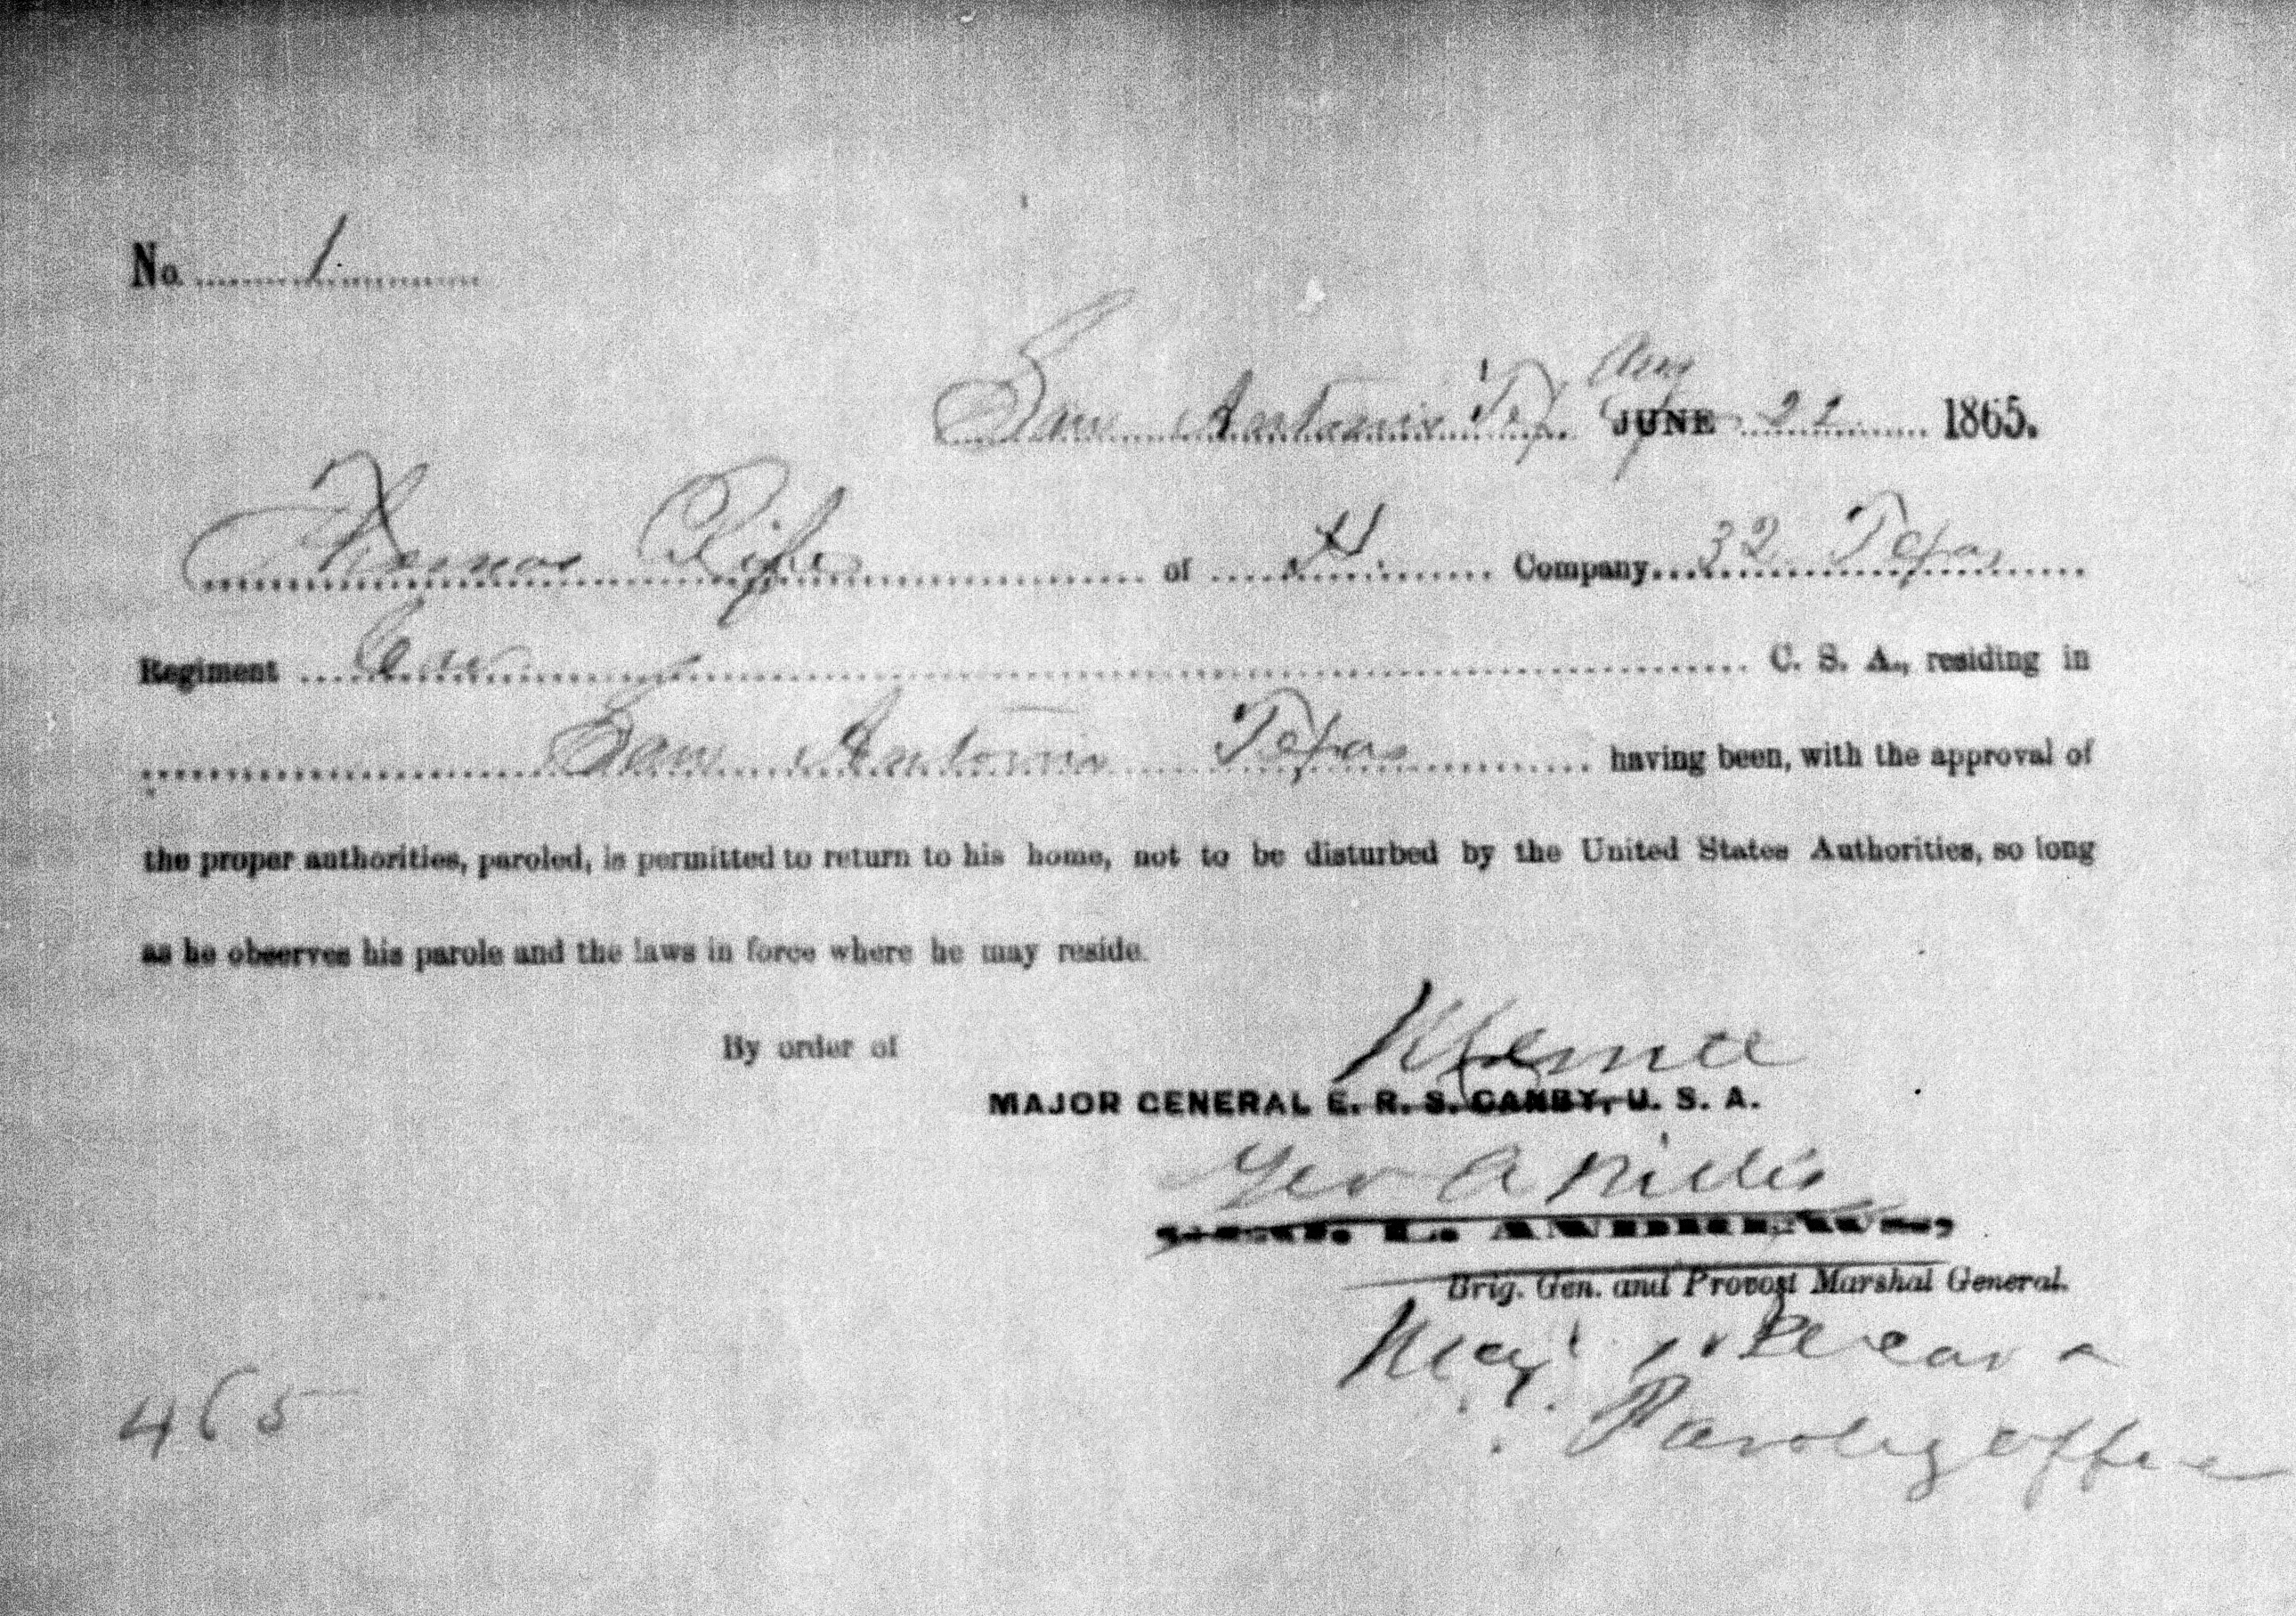 No. 1
Aug
San Antonio Tex JUNE 22 1865.
Thomas Rife of H Company 32 Texas
Regiment Cav C. S. A., residing in
San Antonio Texas having been, with the approval of
the proper authorities, paroled, is permitted to return to his home, not to be disturbed by the United States Authorities, so long
as he observes his parole and the laws in force where he may reside.
By order of
Merritt
MAJOR GENERAL E. R. S. CANBY, U. S. A.
Geo A
L. ANDREWS,
Brig. Gen. and Provost Marshal General.
Maj.
Parolg officer
465